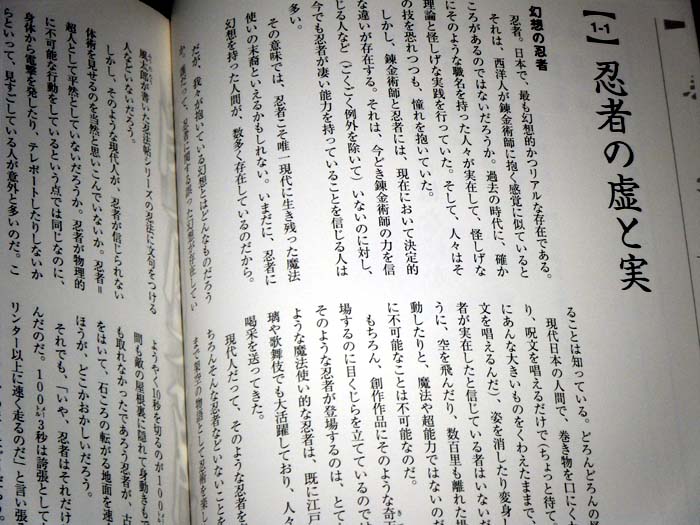 【1-1】忍者の虚と実
幻想の忍者
忍者。日本で、最も幻想的かつリアルな存在である。
それは、西洋人が錬金術師に抱く感覚に似ていると
ころがあるのではないだろうか。過去の時代に、確か
にそのような職名を持った人々が実在して、怪しげな
理論と怪しげな実践を行っていた。そして、人々はそ
の技を恐れつつも、憧れを抱いていた。
しかし、錬金術師と忍者には、現在において決定的
な違いが存在する。それは、今どき錬金術師の力を信
じる人など（ごくごく例外を除いて）いないのに対し、
今でも忍者が凄い能力を持っていることを信じる人は
多い。
その意味では、忍者こそ唯一現代に生き残った魔法
使いの末裔といえるかもしれない。いまだに、忍者に
幻想を持った人間が、数多く存在しているのだから。
だが、我々が抱いている幻想とはどんなものだろう
忍者に関する誤った幻想が存在してい
ることは知っている。どろんどろんの
現代日本の人間で、巻き物を口にく
り、呪文を唱えるだけで（ちょっと待て、
にあんな大きいものをくわえたままで、
文を唱えるんだ）、姿を消したり変身し
者が実在したと信じている者はいないだ
うに、空を飛んだり、数百里も離れた場
動したりと、魔法や超能力ではないのだ
に不可能なことは不可能なのだ。
もちろん、創作作品にそのような奇
場するのに目くじらを立てているのでは
そのような忍者が登場するのは、とて
ような魔法使い的な忍者は、既に江戸
璃や歌舞伎でも大活躍しており、人々
喝采を送ってきた。
現代人だって、そのような忍者を
ちろんそんな忍者などいないことを
まで架空の物語として忍術を楽し
風太郎が書いた忍法帖シリーズの忍法に文句をつける
人などいないだろう。
しかし、そのような現代人が、忍者が信じられない
体術を見せるのを当然と思いこんでいないか。忍者＝
超人として平然としていないだろうか。忍者が物理的
に不可能な行動をしているという点では同じなのに、
身体から電撃を発したり、テレポートしたりしないか
らといって、見すごしている人が意外と多いのだ。こ
ようやく10秒を切るのが100
間も敵の屋根裏に隠れて身動きもで
も取れなかったであろう忍者が、古
をはいて、石ころの転がる地面を速
ほうが、どこかおかしいだろう。
それでも、「いや、忍者はそれだけ
んだのだ。100メートル3秒は誇張として
リンター以上に速く走るのだ」と言い張